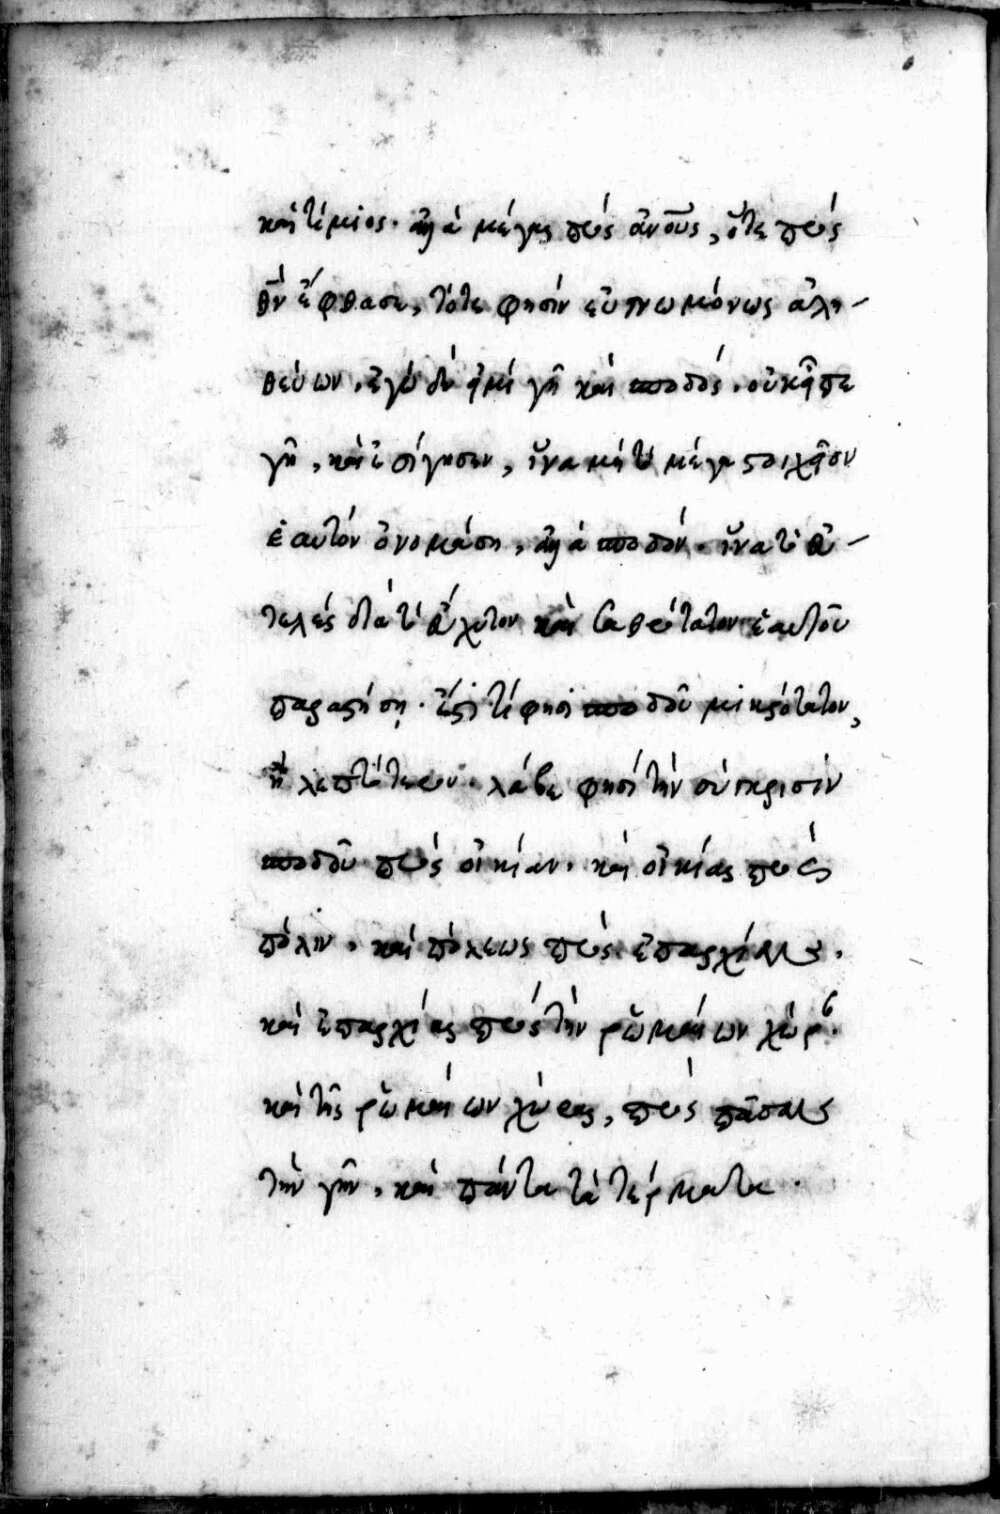 καὶ τίμιος. ἀλλὰ μέγας πρὸς ἀνους, ὅτε πρὸς
θν ἔφθασε, τότε φησὶν εὐγνωμόνως ἀλη-
θεύων, ἐγὼ δέ εἰμι γῆ καὶ σποδός. οὐκ εἶπε
γῆ, καὶ ἐσίγησεν, ἵνα μὴ τὸ μέγα στοιχεῖον
ἑαυτὸν ὀνομάση, ἀλλὰ σποδόν. ἵνα τὸ εὐ-
τελὲς διὰ τὸ εὔχυτον καὶ σαθρώτατον ἑαυτοῦ
παραστήση. ἔστι τί φησι σποδοῦ μικρότατον,
ἢ λεπτότερον. λάβε φησὶ τὴν σύγκρισιν
σποδοῦ πρὸς οἰκίαν. καὶ οἰκίας πρὸς
πόλιν. καὶ πόλεως πρὸς ἐπαρχίαν.
καὶ ἐπαρχίας πρὸς τὴν ῥωμαίων χώρ.
καὶ τῆς ῥωμαίων χώρας, πρὸς πᾶσαν
τὴν γῆν, καὶ πάντα τὰ τέρματα.